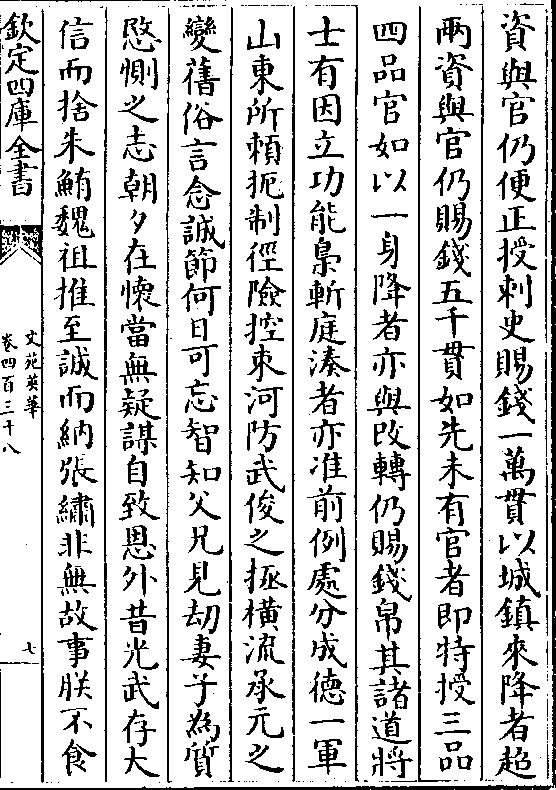 資與官仍便正授刺史賜錢一萬貫以城鎮來降者超
兩資與官仍賜錢五千貫如先未有官者即特授三品
四品官如以一身降者亦與改轉仍賜錢帛其諸道將
士有因立功能梟斬庭湊者亦准前例處分成德一軍
山東所頼扼制徑險控束河防武俊之拯横流承元之
變舊俗言念誠節何日可忘智知父兄見刧妻子為質
愍惻之志朝夕在懷當無疑謀自致恩外昔光武存大
信而捨朱鮪魏祖推至誠而納張繡非無故事朕不食
欽定四庫全書
文苑英華
卷四百三十八
七